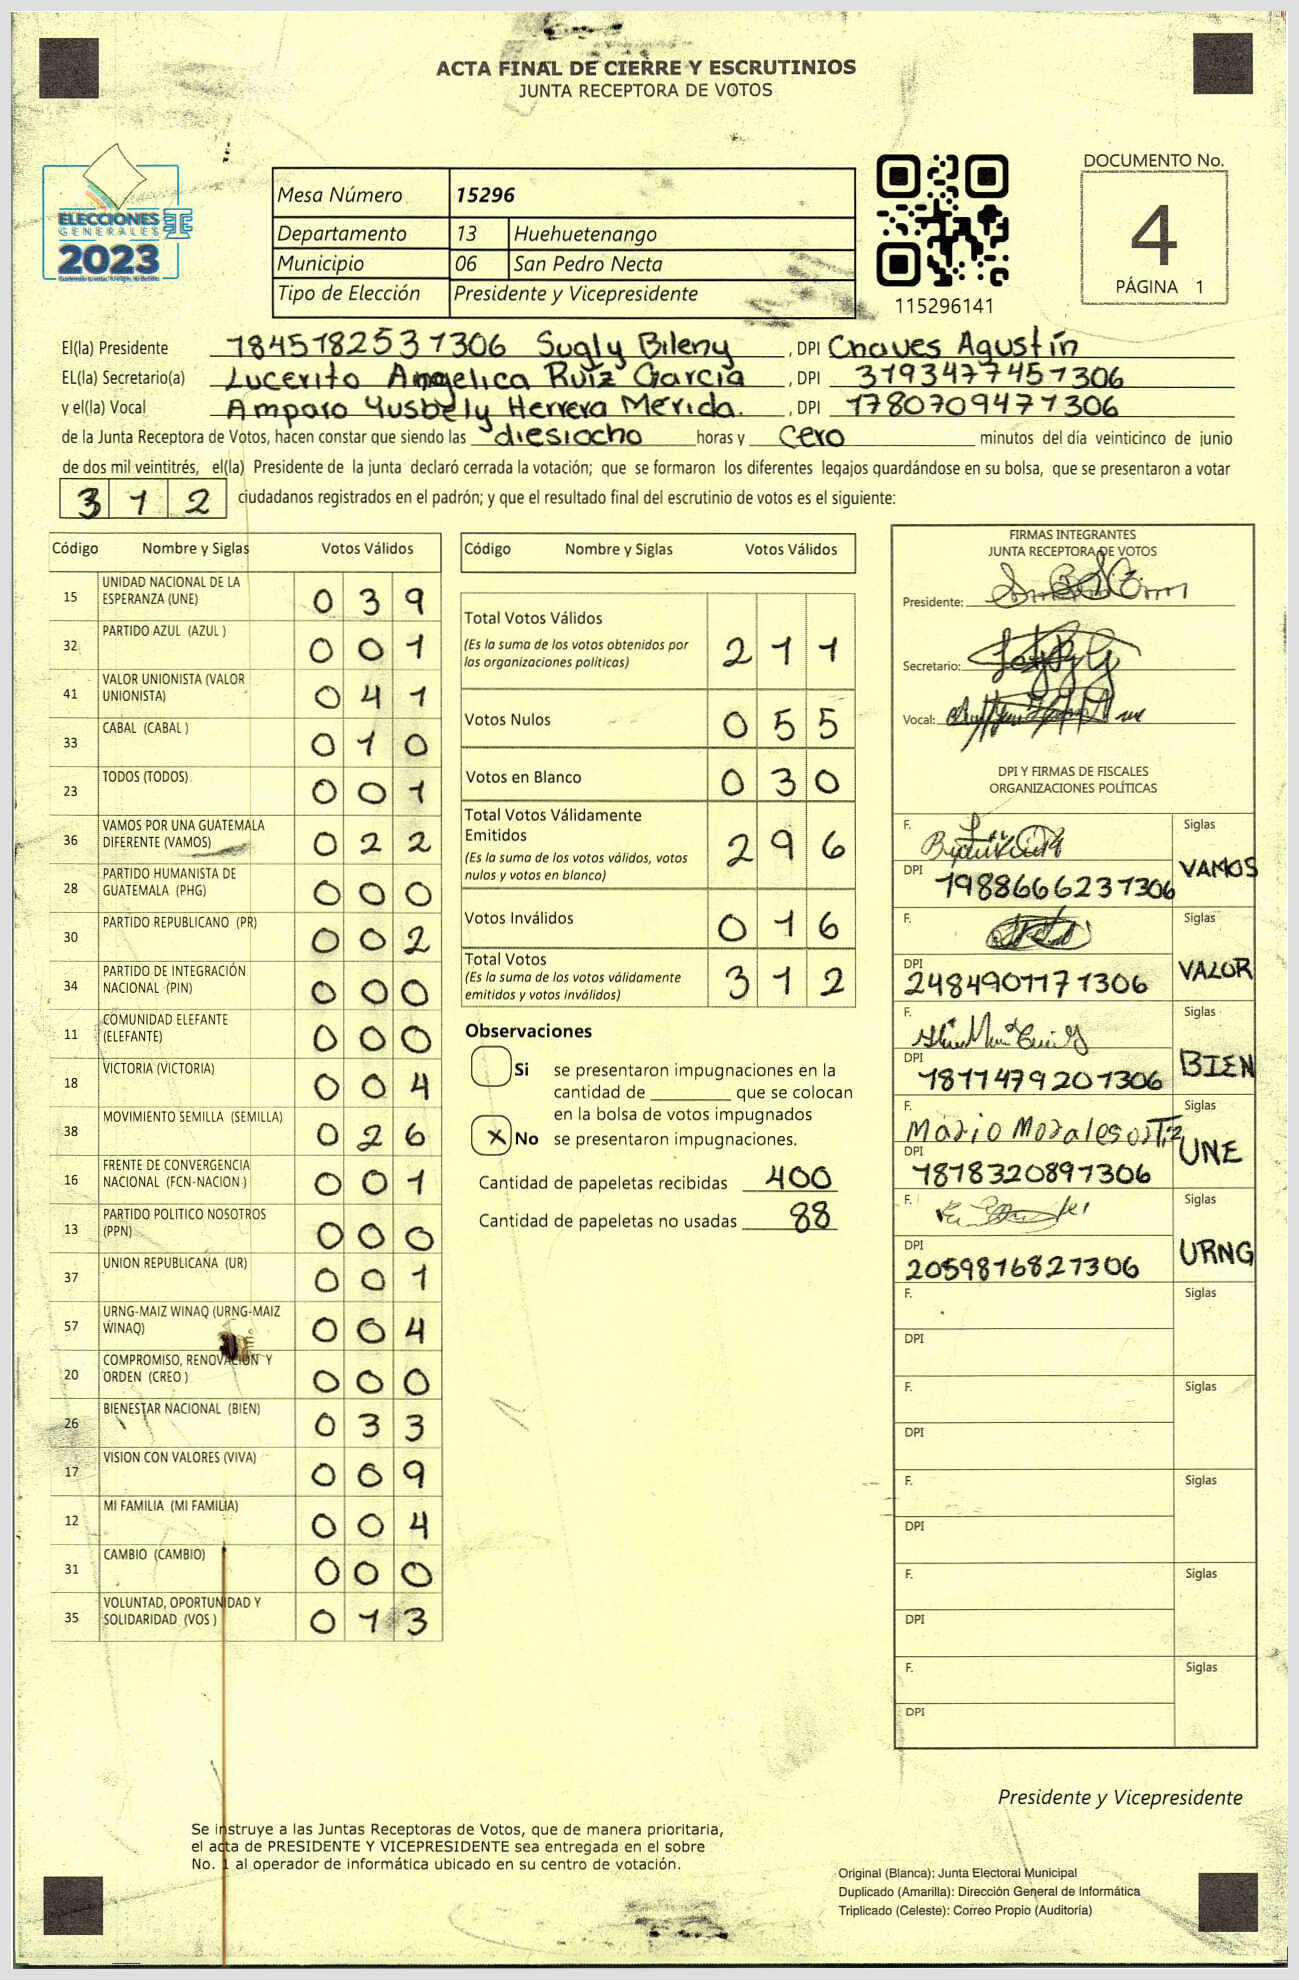 ACTA FINAL DE CIERRE Y ESCRUTINIOS
JUNTA RECEPTORA DE VOTOS
ELECCIONES
GENERALES
2023
Mesa Número 15296
Departamento 13 Huehuetenango
Municipio 06 San Pedro Necta
Tipo de Elección Presidente y Vicepresidente
115296141
DOCUMENTO No.
4
PÁGINA 1
El(la) Presidente 1845182531306 Sugly Bileny , DPI Chaves Agustín
EL(la) Secretario(a) Lucerito Angelica Ruiz García , DPI 3193477451306
y el(la) Vocal Amparo Yusbely Herrera Merida. , DPI 1780709471306
de la Junta Receptora de Votos, hacen constar que siendo las diesiocho horas y cero minutos del día veinticinco de junio
de dos mil veintitrés, el(la) Presidente de la junta declaró cerrada la votación; que se formaron los diferentes legajos guardándose en su bolsa, que se presentaron a votar
312 ciudadanos registrados en el padrón; y que el resultado final del escrutinio de votos es el siguiente:
Código Nombre y Siglas Votos Válidos
15 UNIDAD NACIONAL DE LA ESPERANZA (UNE) 039
32 PARTIDO AZUL (AZUL ) 001
41 VALOR UNIONISTA (VALOR UNIONISTA) 041
33 CABAL (CABAL ) 010
23 TODOS (TODOS) 001
36 VAMOS POR UNA GUATEMALA DIFERENTE (VAMOS) 022
28 PARTIDO HUMANISTA DE GUATEMALA (PHG) 000
30 PARTIDO REPUBLICANO (PR) 002
34 PARTIDO DE INTEGRACIÓN NACIONAL (PIN) 000
11 COMUNIDAD ELEFANTE (ELEFANTE) 000
18 VICTORIA (VICTORIA) 004
38 MOVIMIENTO SEMILLA (SEMILLA) 026
16 FRENTE DE CONVERGENCIA NACIONAL (FCN-NACION ) 001
13 PARTIDO POLITICO NOSOTROS (PPN) 000
37 UNION REPUBLICANA (UR) 001
57 URNG-MAIZ WINAQ (URNG-MAIZ WINAQ) 004
20 COMPROMISO, RENOVACIÓN Y ORDEN (CREO ) 000
26 BIENESTAR NACIONAL (BIEN) 033
17 VISION CON VALORES (VIVA) 009
12 MI FAMILIA (MI FAMILIA) 004
31 CAMBIO (CAMBIO) 000
35 VOLUNTAD, OPORTUNIDAD Y SOLIDARIDAD (VOS ) 013
Código Nombre y Siglas Votos Válidos
Total Votos Válidos
(Es la suma de los votos obtenidos por
las organizaciones políticas) 211
Votos Nulos 055
Votos en Blanco 030
Total Votos Válidamente
Emitidos
(Es la suma de los votos válidos, votos
nulos y votos en blanco) 296
Votos Inválidos 016
Total Votos
(Es la suma de los votos válidamente
emitidos y votos inválidos) 312
Observaciones
Si se presentaron impugnaciones en la
cantidad de ________ que se colocan
en la bolsa de votos impugnados
X No se presentaron impugnaciones.
Cantidad de papeletas recibidas 400
Cantidad de papeletas no usadas 88
FIRMAS INTEGRANTES
JUNTA RECEPTORA DE VOTOS
Presidente:
Secretario:
Vocal:
DPI Y FIRMAS DE FISCALES
ORGANIZACIONES POLÍTICAS
F. Siglas
DPI 1988666231306 VAMOS
F. Siglas
DPI 2484901171306 VALOR
F. Siglas
DPI 1817479201306 BIEN
F. Mario Morales ortiz Siglas
DPI 1818320891306 UNE
F. Siglas
DPI 2059816821306 URNG
F. Siglas
DPI
F. Siglas
DPI
F. Siglas
DPI
F. Siglas
DPI
F. Siglas
DPI
Presidente y Vicepresidente
Se instruye a las Juntas Receptoras de Votos, que de manera prioritaria,
el acta de PRESIDENTE Y VICEPRESIDENTE sea entregada en el sobre
No. 1 al operador de informática ubicado en su centro de votación.
Original (Blanca): Junta Electoral Municipal
Duplicado (Amarilla): Dirección General de Informática
Triplicado (Celeste): Correo Propio (Auditoría)